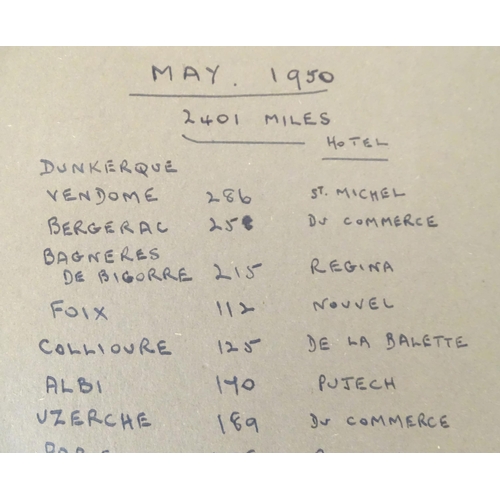 MAY. 1950
2401 MILES
HOTEL
DUNKERQUE
VENDOME 286 ST. MICHEL
BERGERAC 258 DU COMMERCE
BAGNERES
DE BIGORRE 215 REGINA
FOIX 112 NOUVEL
COLLIOURE 125 DE LA BALETTE
ALBI 140 PUJECH
UZERCHE 189 DU COMMERCE